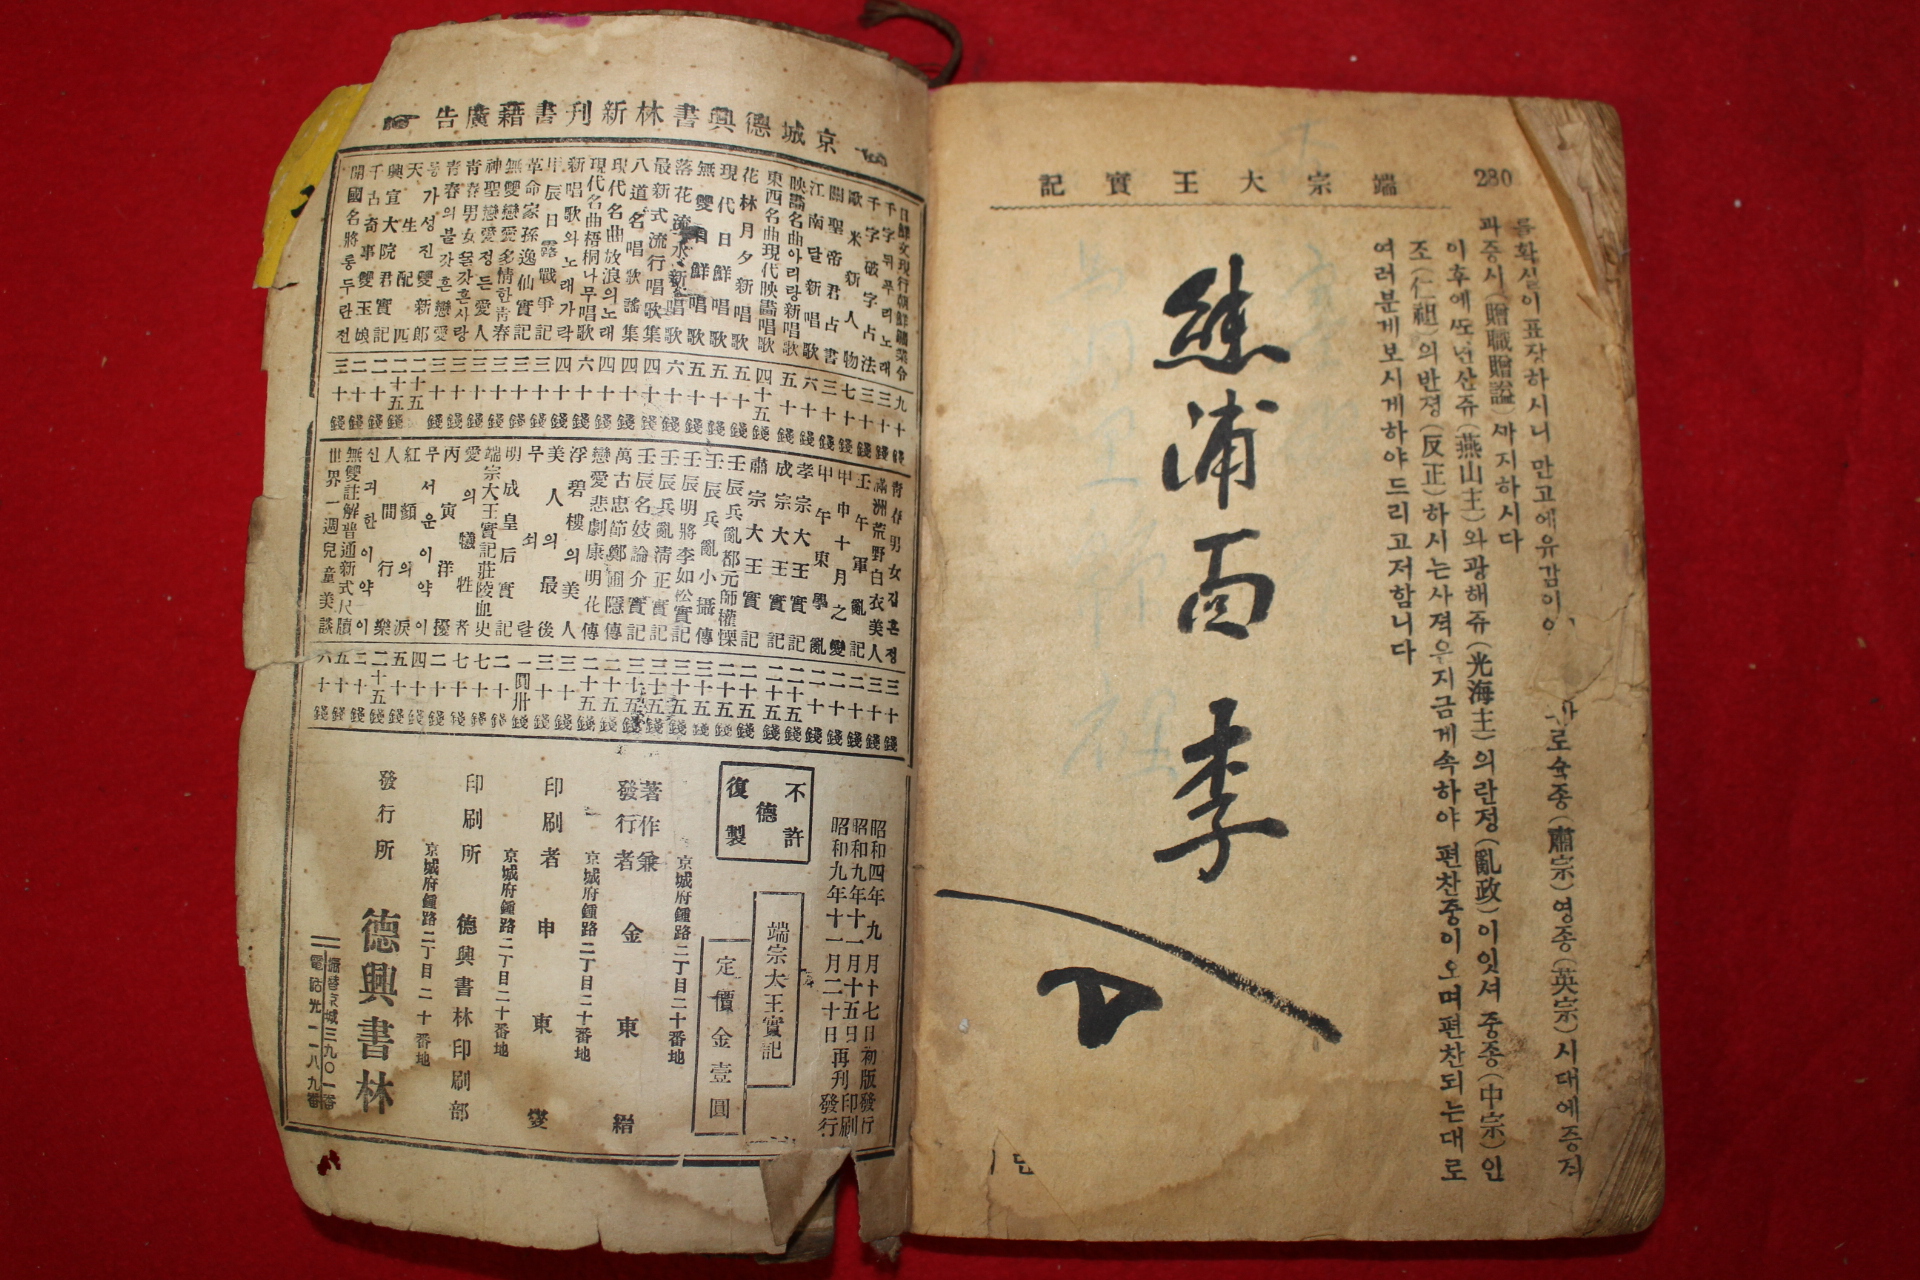 280
端宗大王實記
과증시(贈職贈諡)까지하시다
이후에또년산쥬(燕山主)와광해쥬(光海主)의란정(亂政)이잇셔중종(中宗)인
조(仁祖)의반졍(反正)하시는사젹우지금계속하야편찬중이오며편찬되는대로
여러분게보시게하야드리고저함니다
京城德興書林新刊書籍廣告
千字뒤푸리노래 三十錢
千字破字占法 三十錢
歐米新人物 七十錢
關聖帝君占書 三十錢
江南달新唱歌 六十錢
映畵名曲아리랑新唱歌 五十錢
東西名曲現代映畵唱歌 四十五錢
花林月夕新唱歌 五十錢
現代日鮮唱歌 五十錢
無雙日鮮唱歌 五十錢
落花流水新唱歌 六十錢
最新式流行唱歌集 四十錢
八道名唱歌謠集 四十錢
現代名曲放浪의노래 四十錢
現代名曲梧桐나무唱歌 六十錢
新唱歌와노래가락 四十錢
甲辰日露戰爭記 三十錢
革命家孫逸仙實記 三十錢
無雙戀愛多情한靑春 三十錢
神聖戀愛정든愛人 三十錢
靑春男女울긋흔사랑 三十錢
靑春의불긋흔戀愛 三十錢
동가성진雙新郎 二十五錢
天生配匹 二十五錢
興宣大院君實記 二十錢
千古奇事雙玉娘 二十錢
開國名將롱두란전 三十錢
靑春男女길흔정 三十錢
滿洲荒野白衣美人 三十錢
壬午軍亂記 二十錢
甲申十月之變 二十錢
甲午東學亂 二十錢
孝宗大王實記 二十五錢
成宗大王實記 二十五錢
肅宗大王實記 二十五錢
壬辰兵亂都元師權慄 二十五錢
壬辰兵亂小攝傳 三十五錢
壬辰明將李如松實記 三十五錢
壬辰兵亂淸正實記 三十五錢
壬辰名妓論介實記 三十五錢
萬古忠節鄭圃隱傳 二十五錢
戀愛悲劇康明花傳 二十五錢
浮碧樓의美人 三十錢
美人의最後 三十錢
무쇠탈 一圓卅錢
明成皇后實記 二十錢
端宗大王實記莊陵血史 七十錢
愛의犧牲者 七十錢
丙寅洋擾 二十錢
무서운이약이 四十錢
紅顔의淚 五十錢
人間行樂 二十五錢
신긔한이약이 二十錢
無雙註解普通新式尺牘 五十錢
世界一週兒童美談 六十錢
昭和四年九月十七日初版發行
昭和九年十一月十五日再刊印刷
昭和九年十一月二十日再刊發行
不許復製
德
端宗大王實記
定價金壹圓
京城府鍾路二丁目二十番地
著作兼發行者 金東縉
京城府鍾路二丁目二十番地
印刷者 申東燮
京城府鍾路二丁目二十番地
印刷所 德興書林印刷部
京城府鍾路二丁目二十番地
發行所 德興書林
振替京城三九〇一番